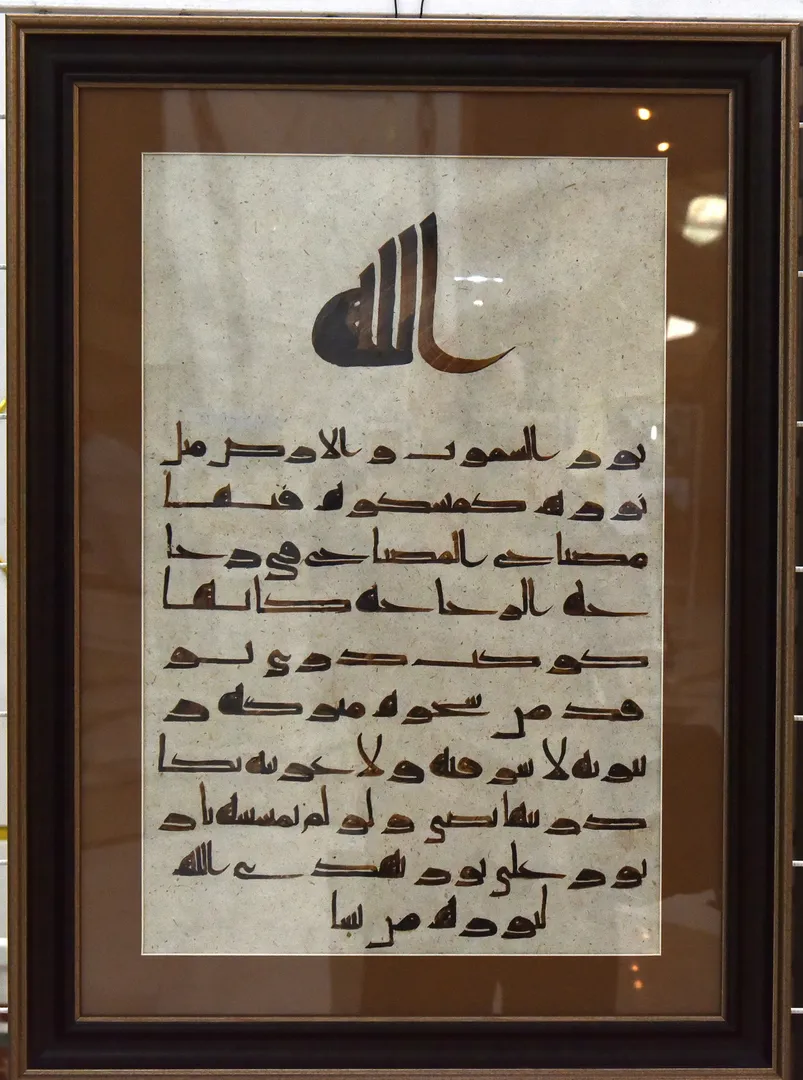 الله
نور السموت و الارض مثل
نوره كمشكوه فيها
مصباح المصباح في زجا
جه الزجاجه كانها
كوكب دري يو
قد من شجره مبركه ز
يتونه لا شرقيه و لا غربيه يكا
د زيتها يضي و لو لم تمسسه نار
نور علي نور يهدي الله
لنوره من يشا